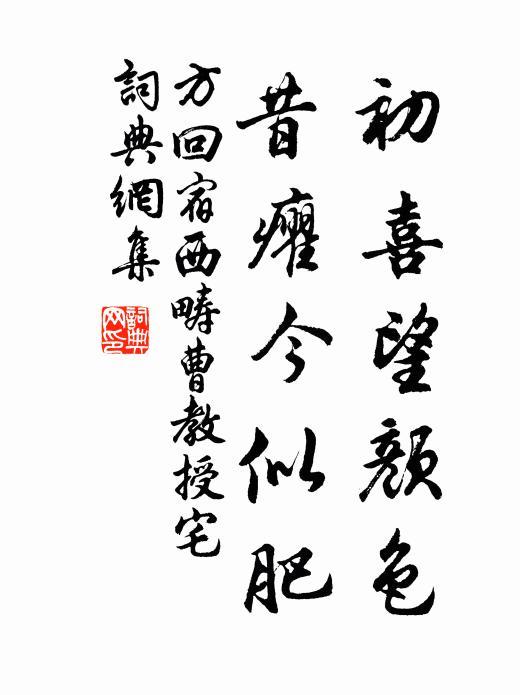 初喜望顏色
昔癯今似肥
方回宿西疇曹教授宅
詞典網集
詞典网印